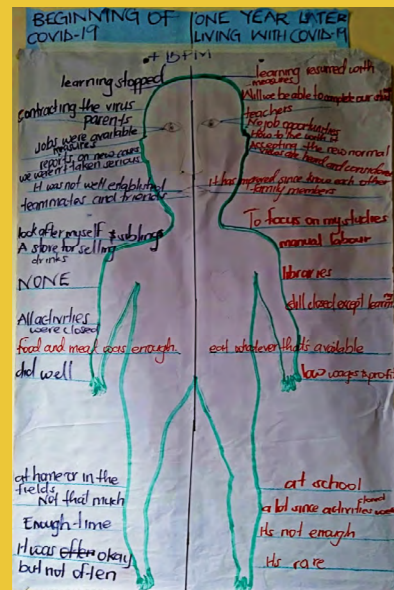 BEGINNING OF
COVID-19
ONE YEAR LATER
LIVING WITH COVID-19
learning stopped
contracting the virus
parents
Jobs were available
measures
reports on new cases
we weren't taken serious
It was not well established
teammates and friends
look after myself & siblings
A store for selling
drinks
NONE
All activities
were closed
food and meat was enough
did well
at home or in the
fields
Not that much
Enough-time
It was often okay
but not often
learning resumed with
measures
Will we be able to complete our
teachers
No job opportunities
How to live with it
Accepting the new normal
It has improved since know each other
family members
To focus on my studies
manual labour
libraries
still closed except
eat whatever that's available
low wages & profit
at school
a lot since activities
closed
Its not enough
Its rare